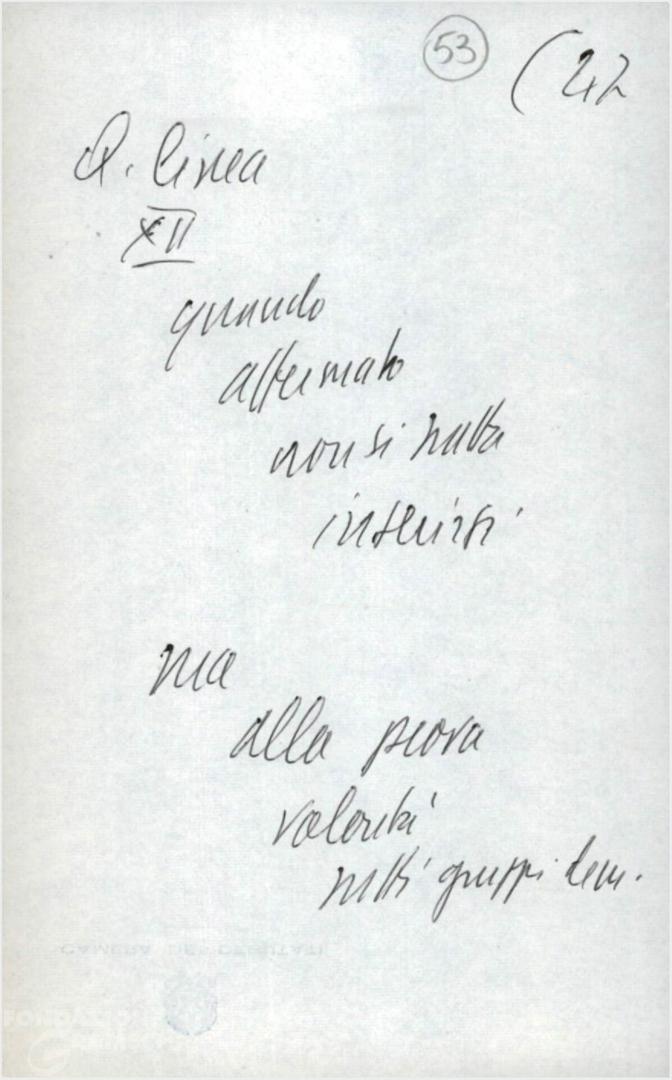 53 (42
Q. linea
XII
quando
affermato
non si tratta
inserirsi
ma
alla prova
volontà
tutti gruppi dem.
CAMERA DEI DEPUTATI